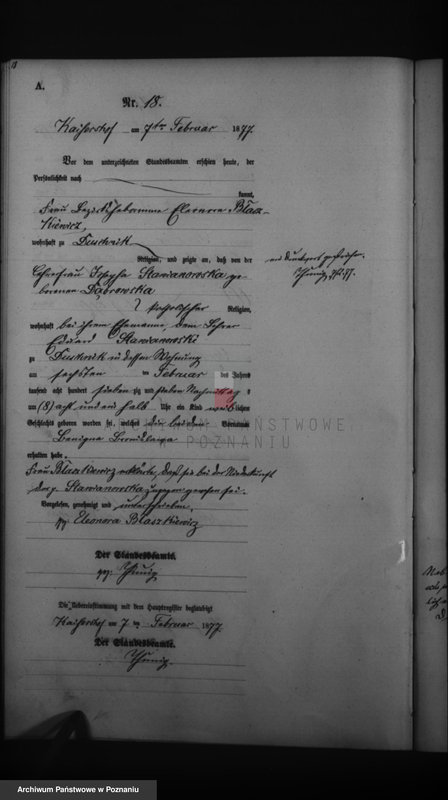 A.
Nr. 18.
Kaisershof am 7ten Februar 1877
Vor dem unterzeichneten Standesbeamten erschien heute, der
Persönlichkeit nach
kannt,
Frau Bezirkshebamme Eleonora Błasz-
kiewicz,
wohnhaft zu Duschnik
Religion, und zeigte an, daß von der
Lehrerfrau Josepha Slawianowska ge-
borenen Dąbrowska
katholischer Religion,
wohnhaft bei ihrem Ehemanne, dem Lehrer
Eduard Slawianowski
zu Duschnik in dessen Wohnung
am sechsten ten Februar des Jahres
tausend acht hundert siebenzig und sieben Nachmittag s
um (8) acht und ein halb Uhr ein Kind weiblichen
Geschlechts geboren worden sei, welches die beiden Vornamen
Benigna
erhalten habe.
Frau Błaszkiewicz erklärte, daß sie bei der Niederkunft
der p. Slawianowska zugegen gewesen sei.
Vorgelesen, genehmigt und unterschrieben.
gez. Eleonora Blaszkiewicz
Der Standesbeamte.
gez.
Die Uebereinstimmung mit dem Hauptregister beglaubigt
Kaisershof am 7 ten Februar 1877
Der Standesbeamte.
ARCHIWUM PAŃSTWOWE
W POZNANIU
Archiwum Państwowe w Poznaniu